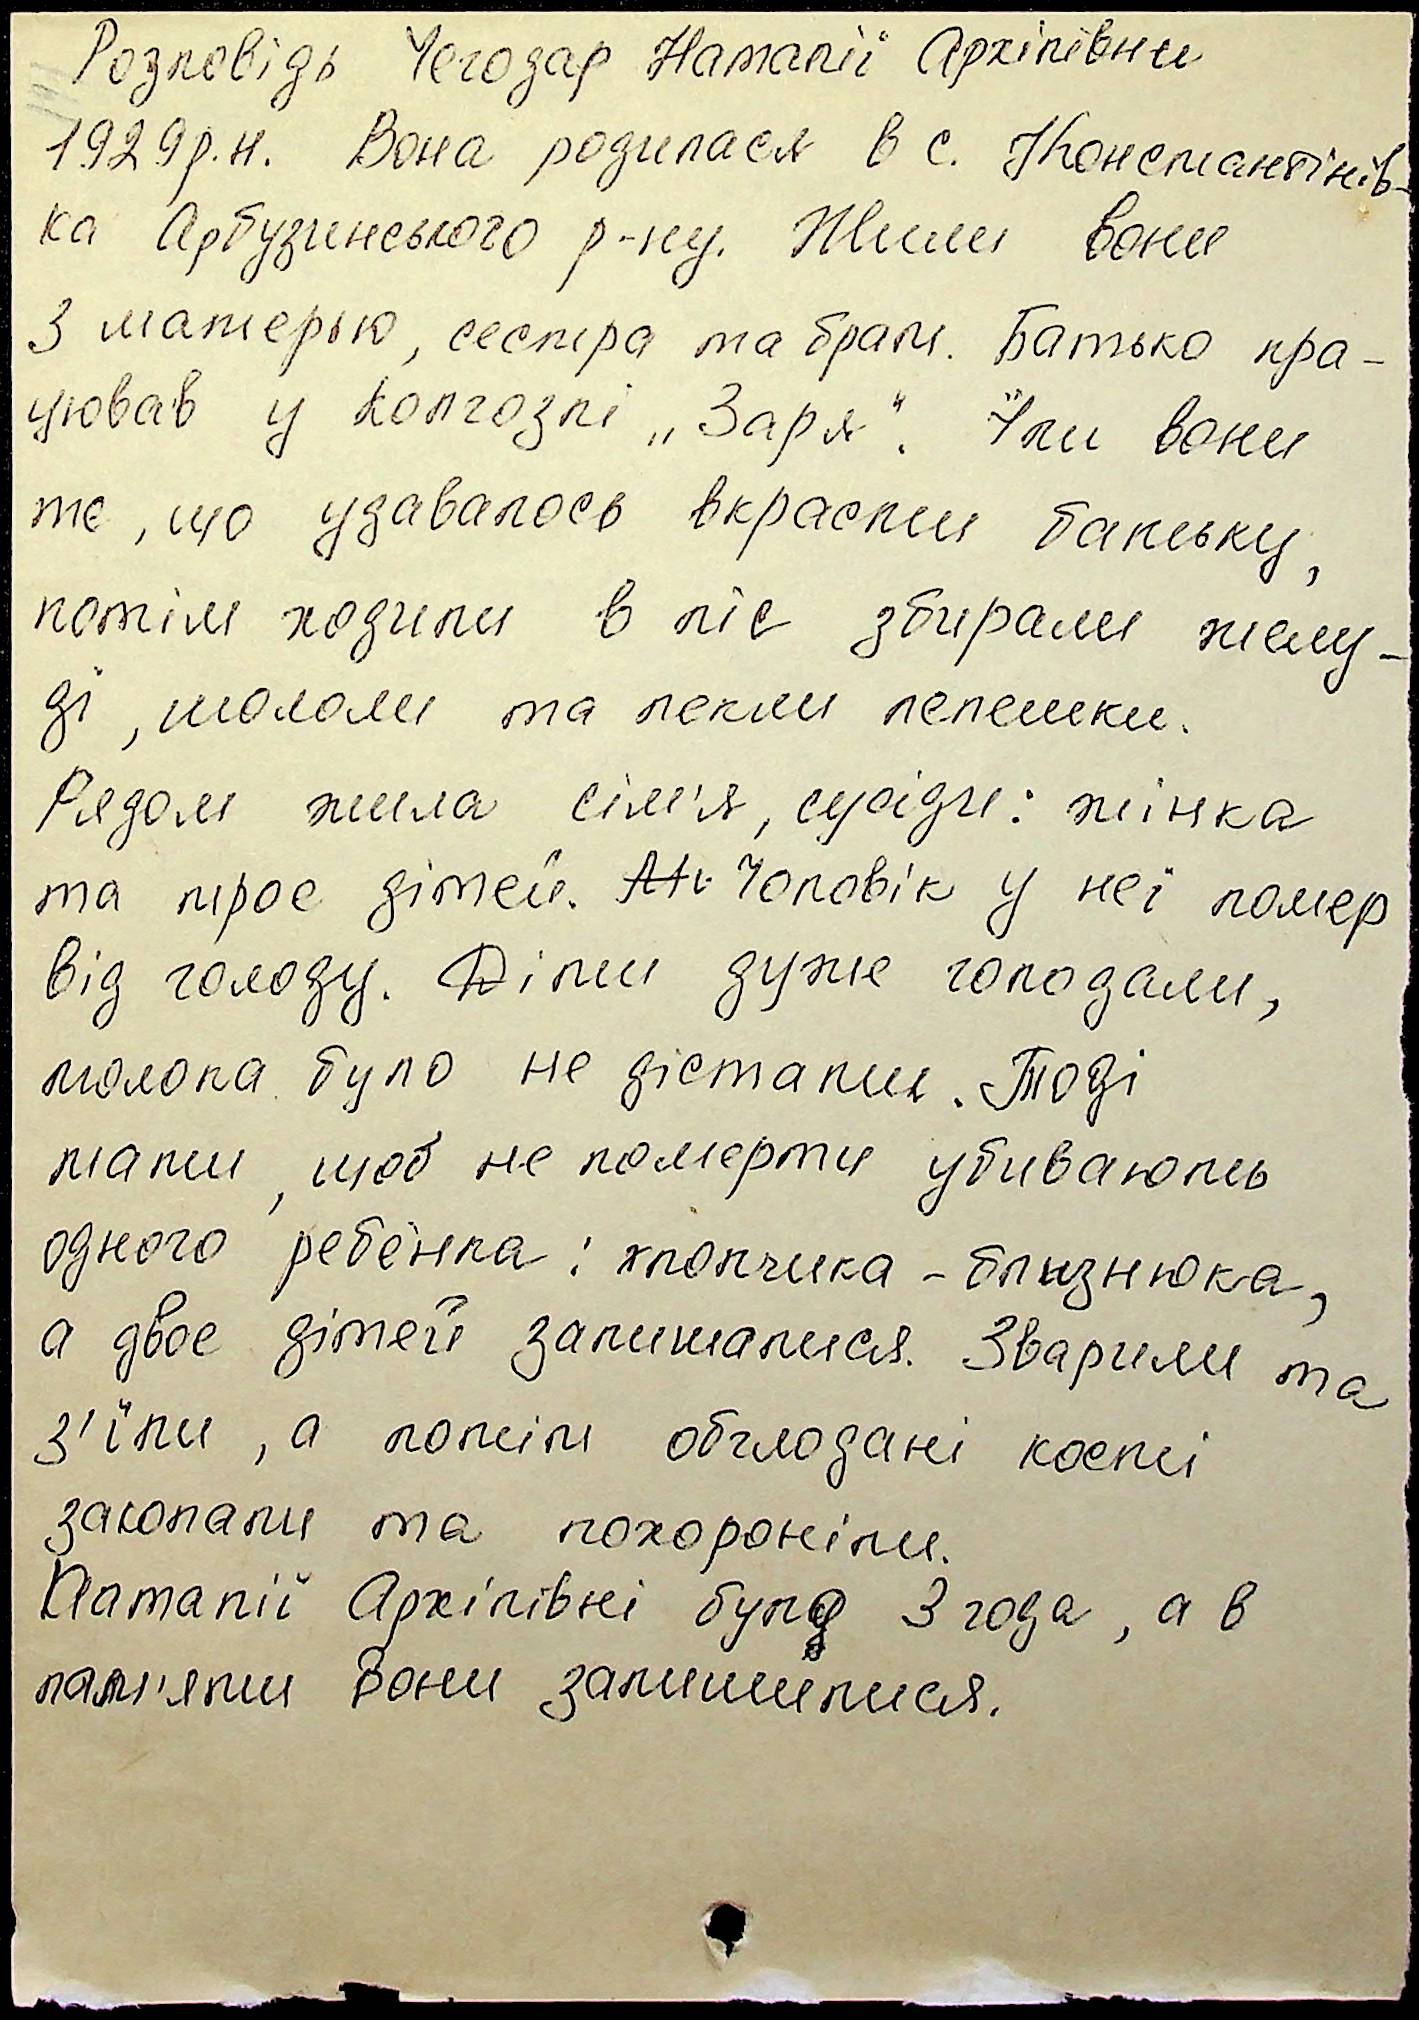 Розповідь Чегодар Наталії Архіпівни
1929р.н. Вона родилася в с. Константінів-
ка Арбузинського р-ну. Жили вони
з матерью, сестра та брат. Батько пра-
цював у колгоспі „Заря". Їли вони
те, що удавалось вкрасти батьку,
потім ходили в ліс збирали желу-
ді, мололи та пекли лепешки.
Рядом жила сім'я, сусіди: жінка
та троє дітей. Чоловік у неї помер
від голоду. Діти дуже голодали,
молока було не дістати. Тоді
мати, щоб не померти убивають
одного ребёнка: хлопчика-близнюка,
а двоє дітей залишалися. Зварили та
з'їли, а потім обглодані кості
закопали та похороніли.
Наталії Архіпівні було 3 года, а в
пам'яти вони залишилися.